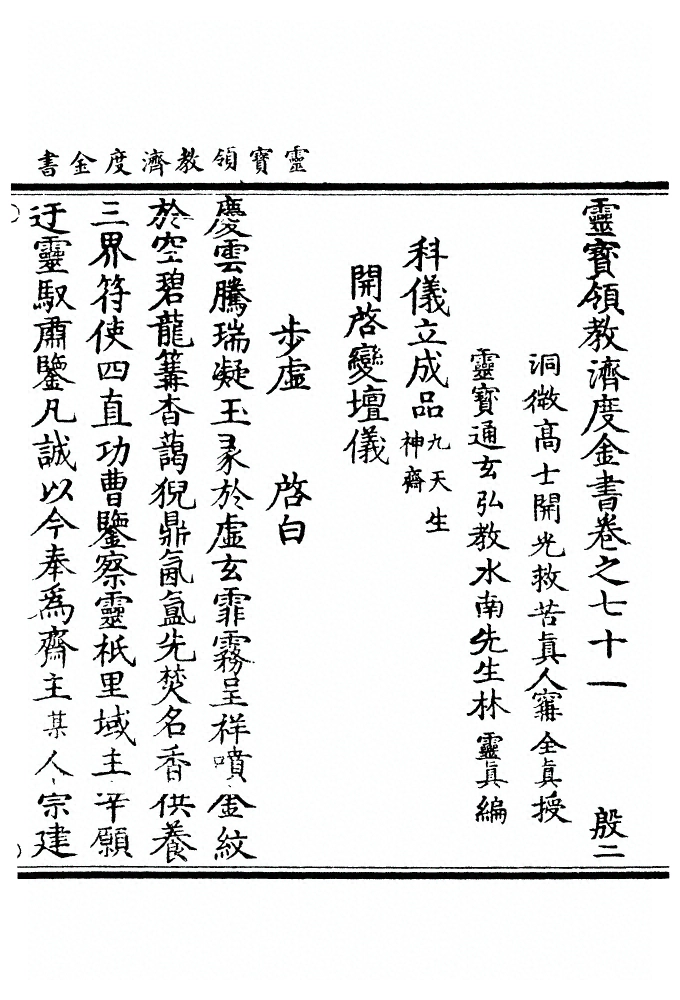 靈寶領教濟度金書
靈寶領教濟度金書卷之七十一 殷二
洞微高士開光救苦眞人甯全眞授
靈寶通玄弘教水南先生林靈眞編
科儀立成品九天生神齋
開啓變壇儀
步虛 啓白
慶雲騰瑞凝玉彖於虛玄霏霧呈祥噴金紋
於空碧龍篝香藹猊鼎氤氳先焚名香供養
三界符使四直功曹鑒察靈祇里域主宰願
迂靈馭肅鑒凡誠以今奉爲齋主某人宗建